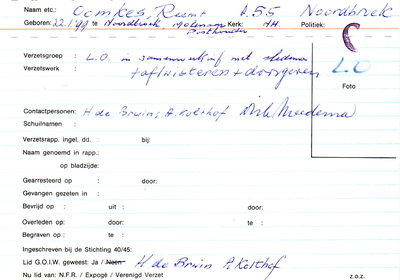 Naam etc.: Oomkes, Reemt A.55 Noordbroek
Geboren: 22.1.99 te Noordbroek, Molenaar Kerk: NH Politiek:
Posthouder
Verzetsgroep : L.O. in samenwerking met
Verzetswerk : + afluisteren + doorgeven
L.O
Foto
Contactpersonen: H de Bruin; A. Kolthof Dirk Meedema
Schuilnamen :
Verzetsrapp. ingel. dd. : bij:
Naam genoemd in rapp.:
op bladzijde:
Gearresteerd op : door:
Gevangen gezeten in :
Bevrijd op : uit : door:
Overleden op: door: te :
Begraven op : te :
Ingeschreven bij de Stichting 40/45:
Lid G.O.I.W. geweest: Ja / Neen H de Bruin A Kolthof
Nu lid van: N.F.R. / Expogé / Verenigd Verzet z.o.z.